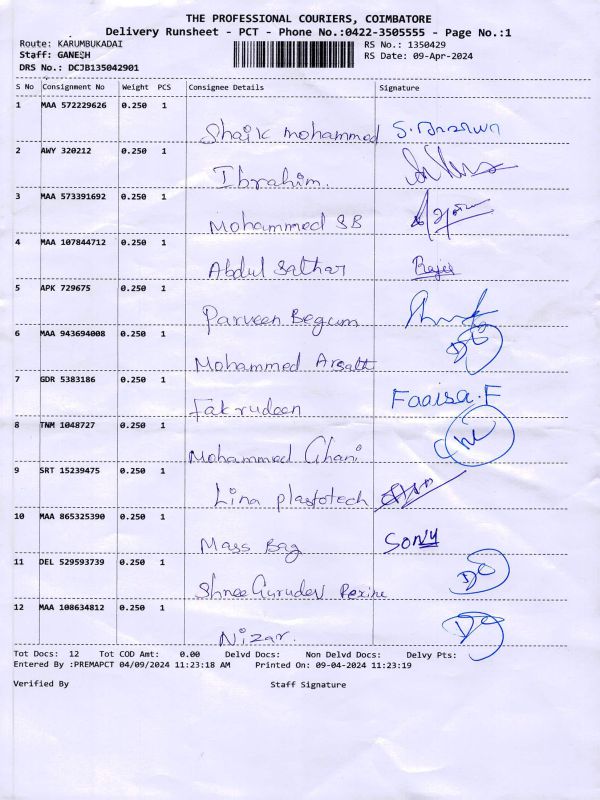 THE PROFESSIONAL COURIERS, COIMBATORE
Delivery Runsheet - PCT - Phone No.:0422-3505555 - Page No.:1
Route: KARUMBUKADAI RS No.: 1350429
Staff: GANESH RS Date: 09-Apr-2024
DRS No.: DCJB135042901
S No Consignment No Weight PCS Consignee Details Signature
1 MAA 572229626 0.250 1
Shaik mohammed
2 AWY 320212 0.250 1
Ibrahim.
3 MAA 573391692 0.250 1
Mohammed SB
4 MAA 107844712 0.250 1
Abdul Sathar
5 APK 729675 0.250 1
Parveen Begum
6 MAA 943694008 0.250 1
Mohammed Arsath
7 GDR 5383186 0.250 1
Fakrudeen Faaisa.F
8 TNM 1048727 0.250 1
Mohammed Ghani
9 SRT 15239475 0.250 1
Lina plastotech
10 MAA 865325390 0.250 1
Mass Bag Sony
11 DEL 529593739 0.250 1
Shree Gurudev Rexine
12 MAA 108634812 0.250 1
Nizar.
Tot Docs: 12 Tot COD Amt: 0.00 Delvd Docs: Non Delvd Docs: Delvy Pts:
Entered By :PREMAPCT 04/09/2024 11:23:18 AM Printed On: 09-04-2024 11:23:19
Verified By Staff Signature